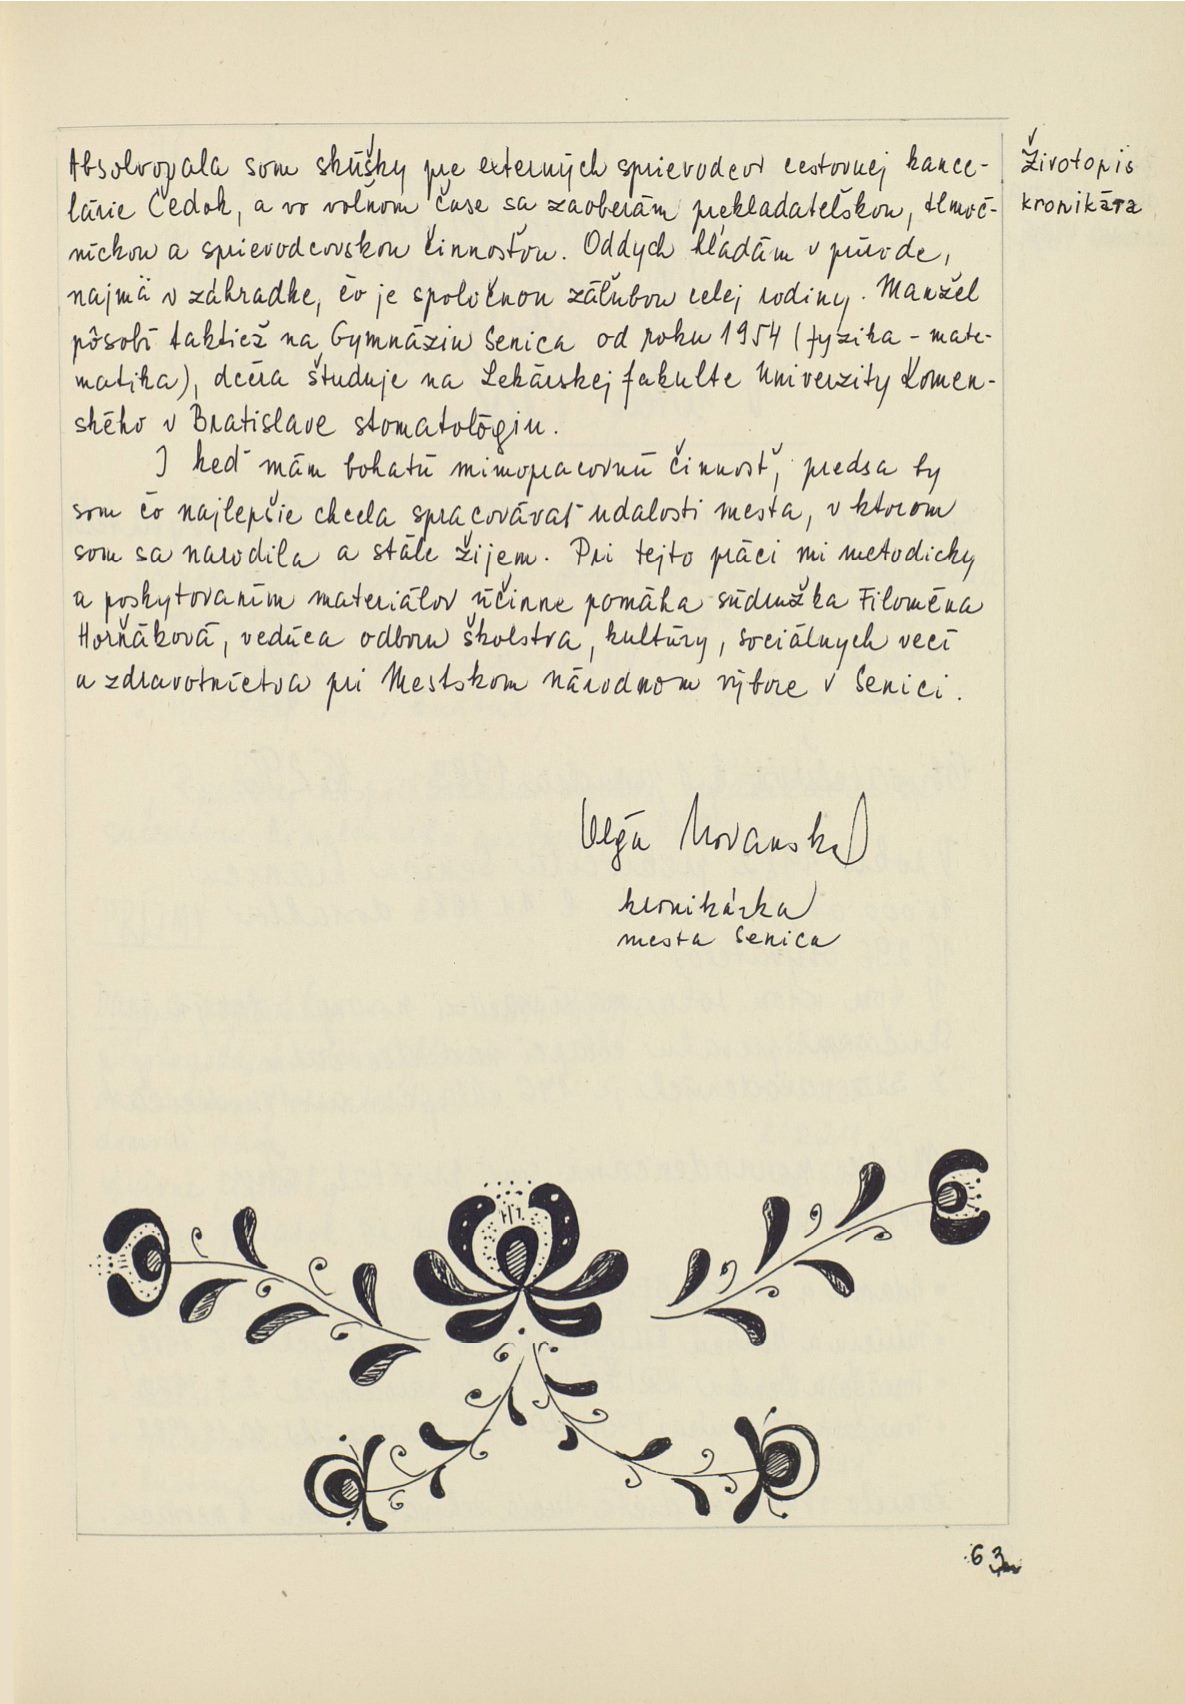 Životopis
kronikára
Absolvovala som skúšky pre externých sprievodcov cestovnej kance-
lárie Čedok, a vo voľnom čase sa zaoberám prekladateľskou, tlmoč-
níckou a sprievodcovskou činnosťou. Oddych hľadám v prírode,
najmä v záhradke, čo je spoločnou záľubou celej rodiny. Manžel
pôsobí taktiež na Gymnáziu Senica od roku 1954 (fyzika - mate-
matika), dcéra študuje na Lekárskej fakulte Univerzity Komen-
ského v Bratislave stomatológiu.
I keď mám bohatú mimopracovnú činnosť, predsa by
som čo najlepšie chcela spracovávať udalosti mesta, v ktorom
som sa narodila a stále žijem. Pri tejto práci mi metodicky
a poskytovaním materiálov účinne pomáha súdružka Filoména
Horňáková, vedúca odboru školstva, kultúry, sociálnych vecí
a zdravotníctva pri Mestskom národnom výbore v Senici.
Oľga
kronikárka
mesta Senica
63